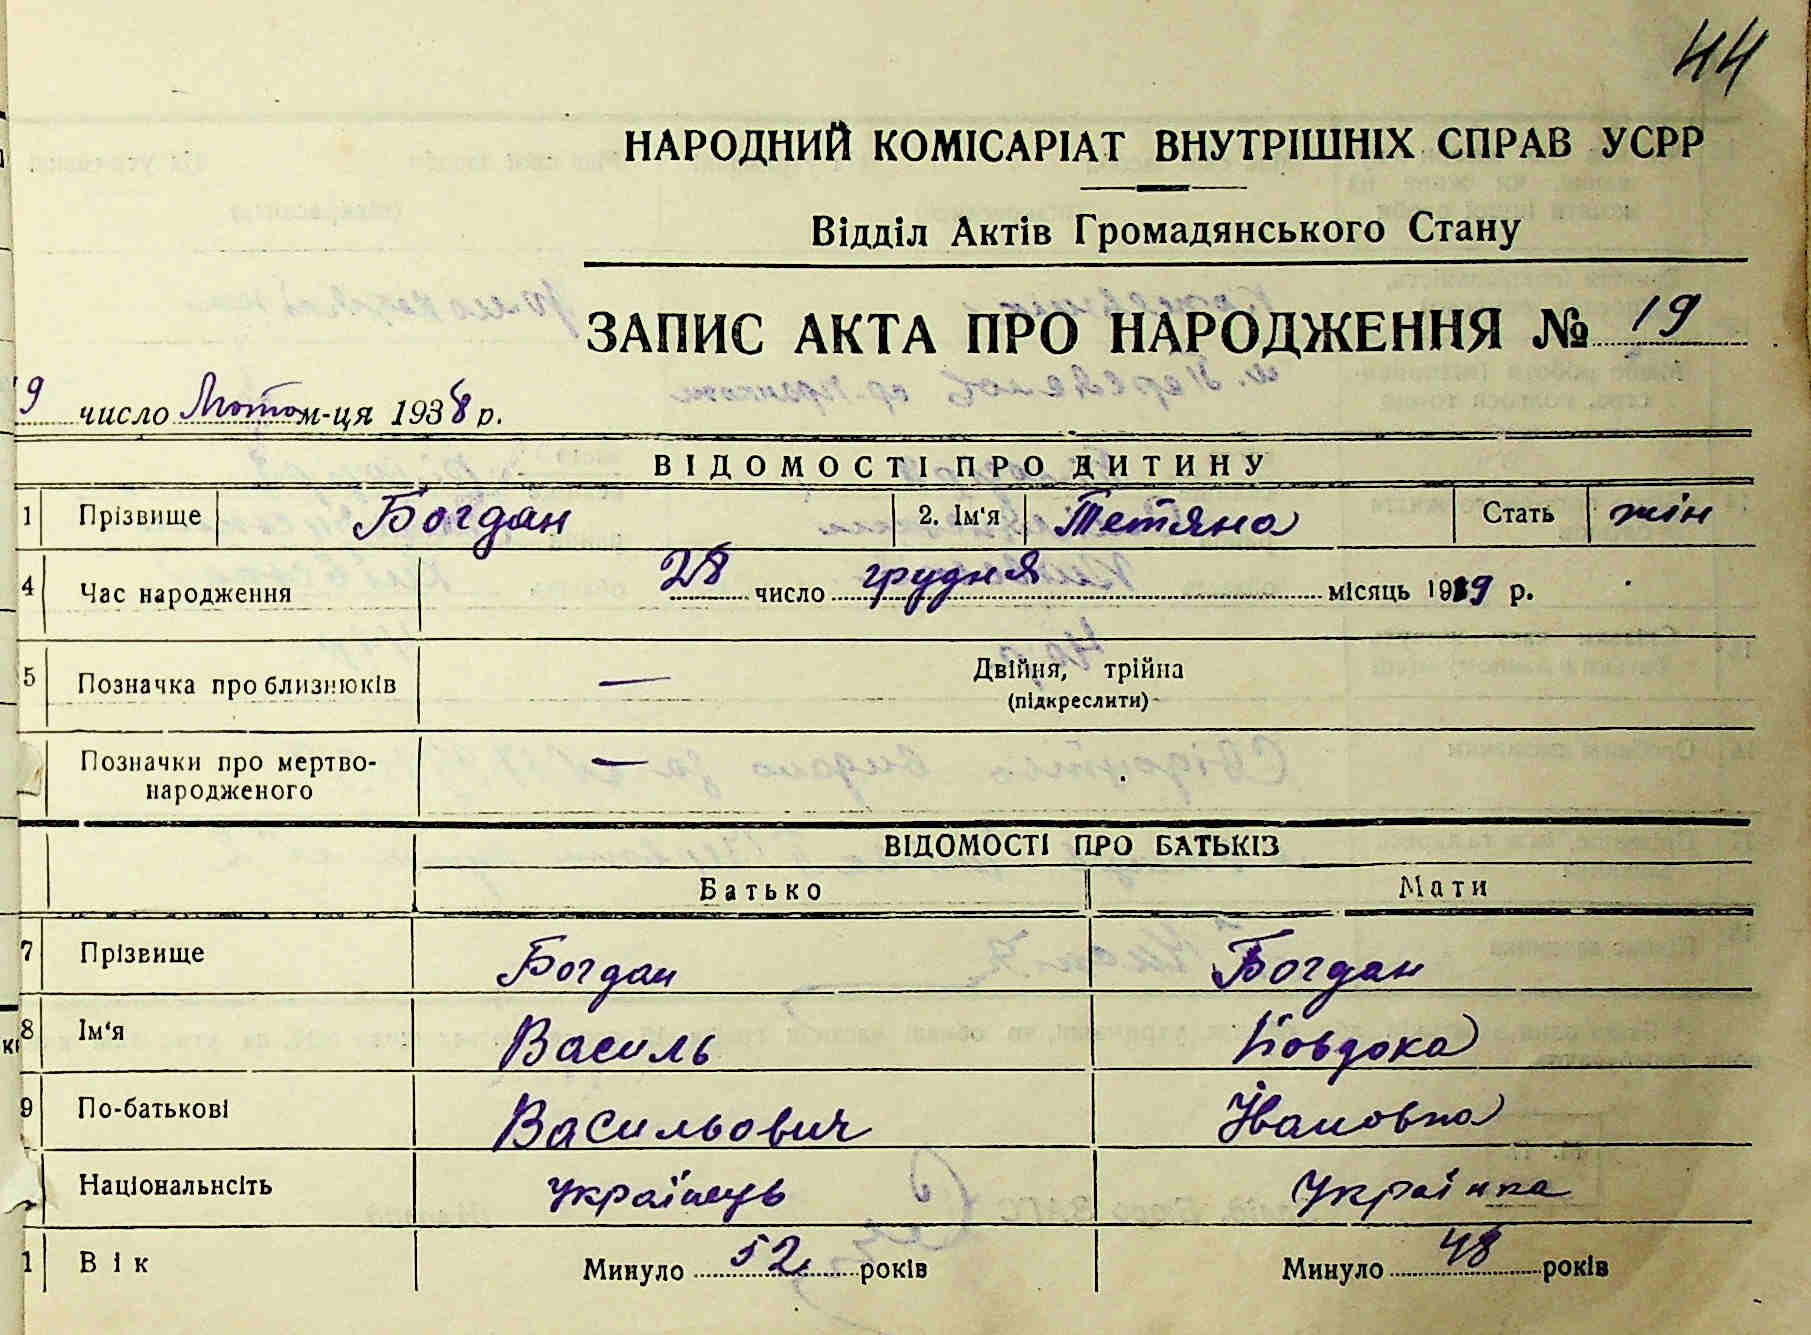 44
НАРОДНИЙ КОМІСАРІАТ ВНУТРІШНІХ СПРАВ УСРР
Відділ Актів Громадянського Стану
ЗАПИС АКТА ПРО НАРОДЖЕННЯ № 19
9 число Лютого м-ця 1938 р.
ВІДОМОСТІ ПРО ДИТИНУ
1 Прізвище Богдан 2. Ім'я Тетяна Стать жін
4 Час народження 28 число грудня місяць 1919 р.
5 Позначка про близнюків — Двійня, трійна
(підкреслити)
Позначки про мертво- —
народженого
ВІДОМОСТІ ПРО БАТЬКІЗ
Батько Мати
7 Прізвище Богдан Богдан
8 Ім'я Василь Йовдока
9 По-батькові Васильович Івановна
Національнсіть Українець Українка
1 Вік Минуло 52 років Минуло 48 років